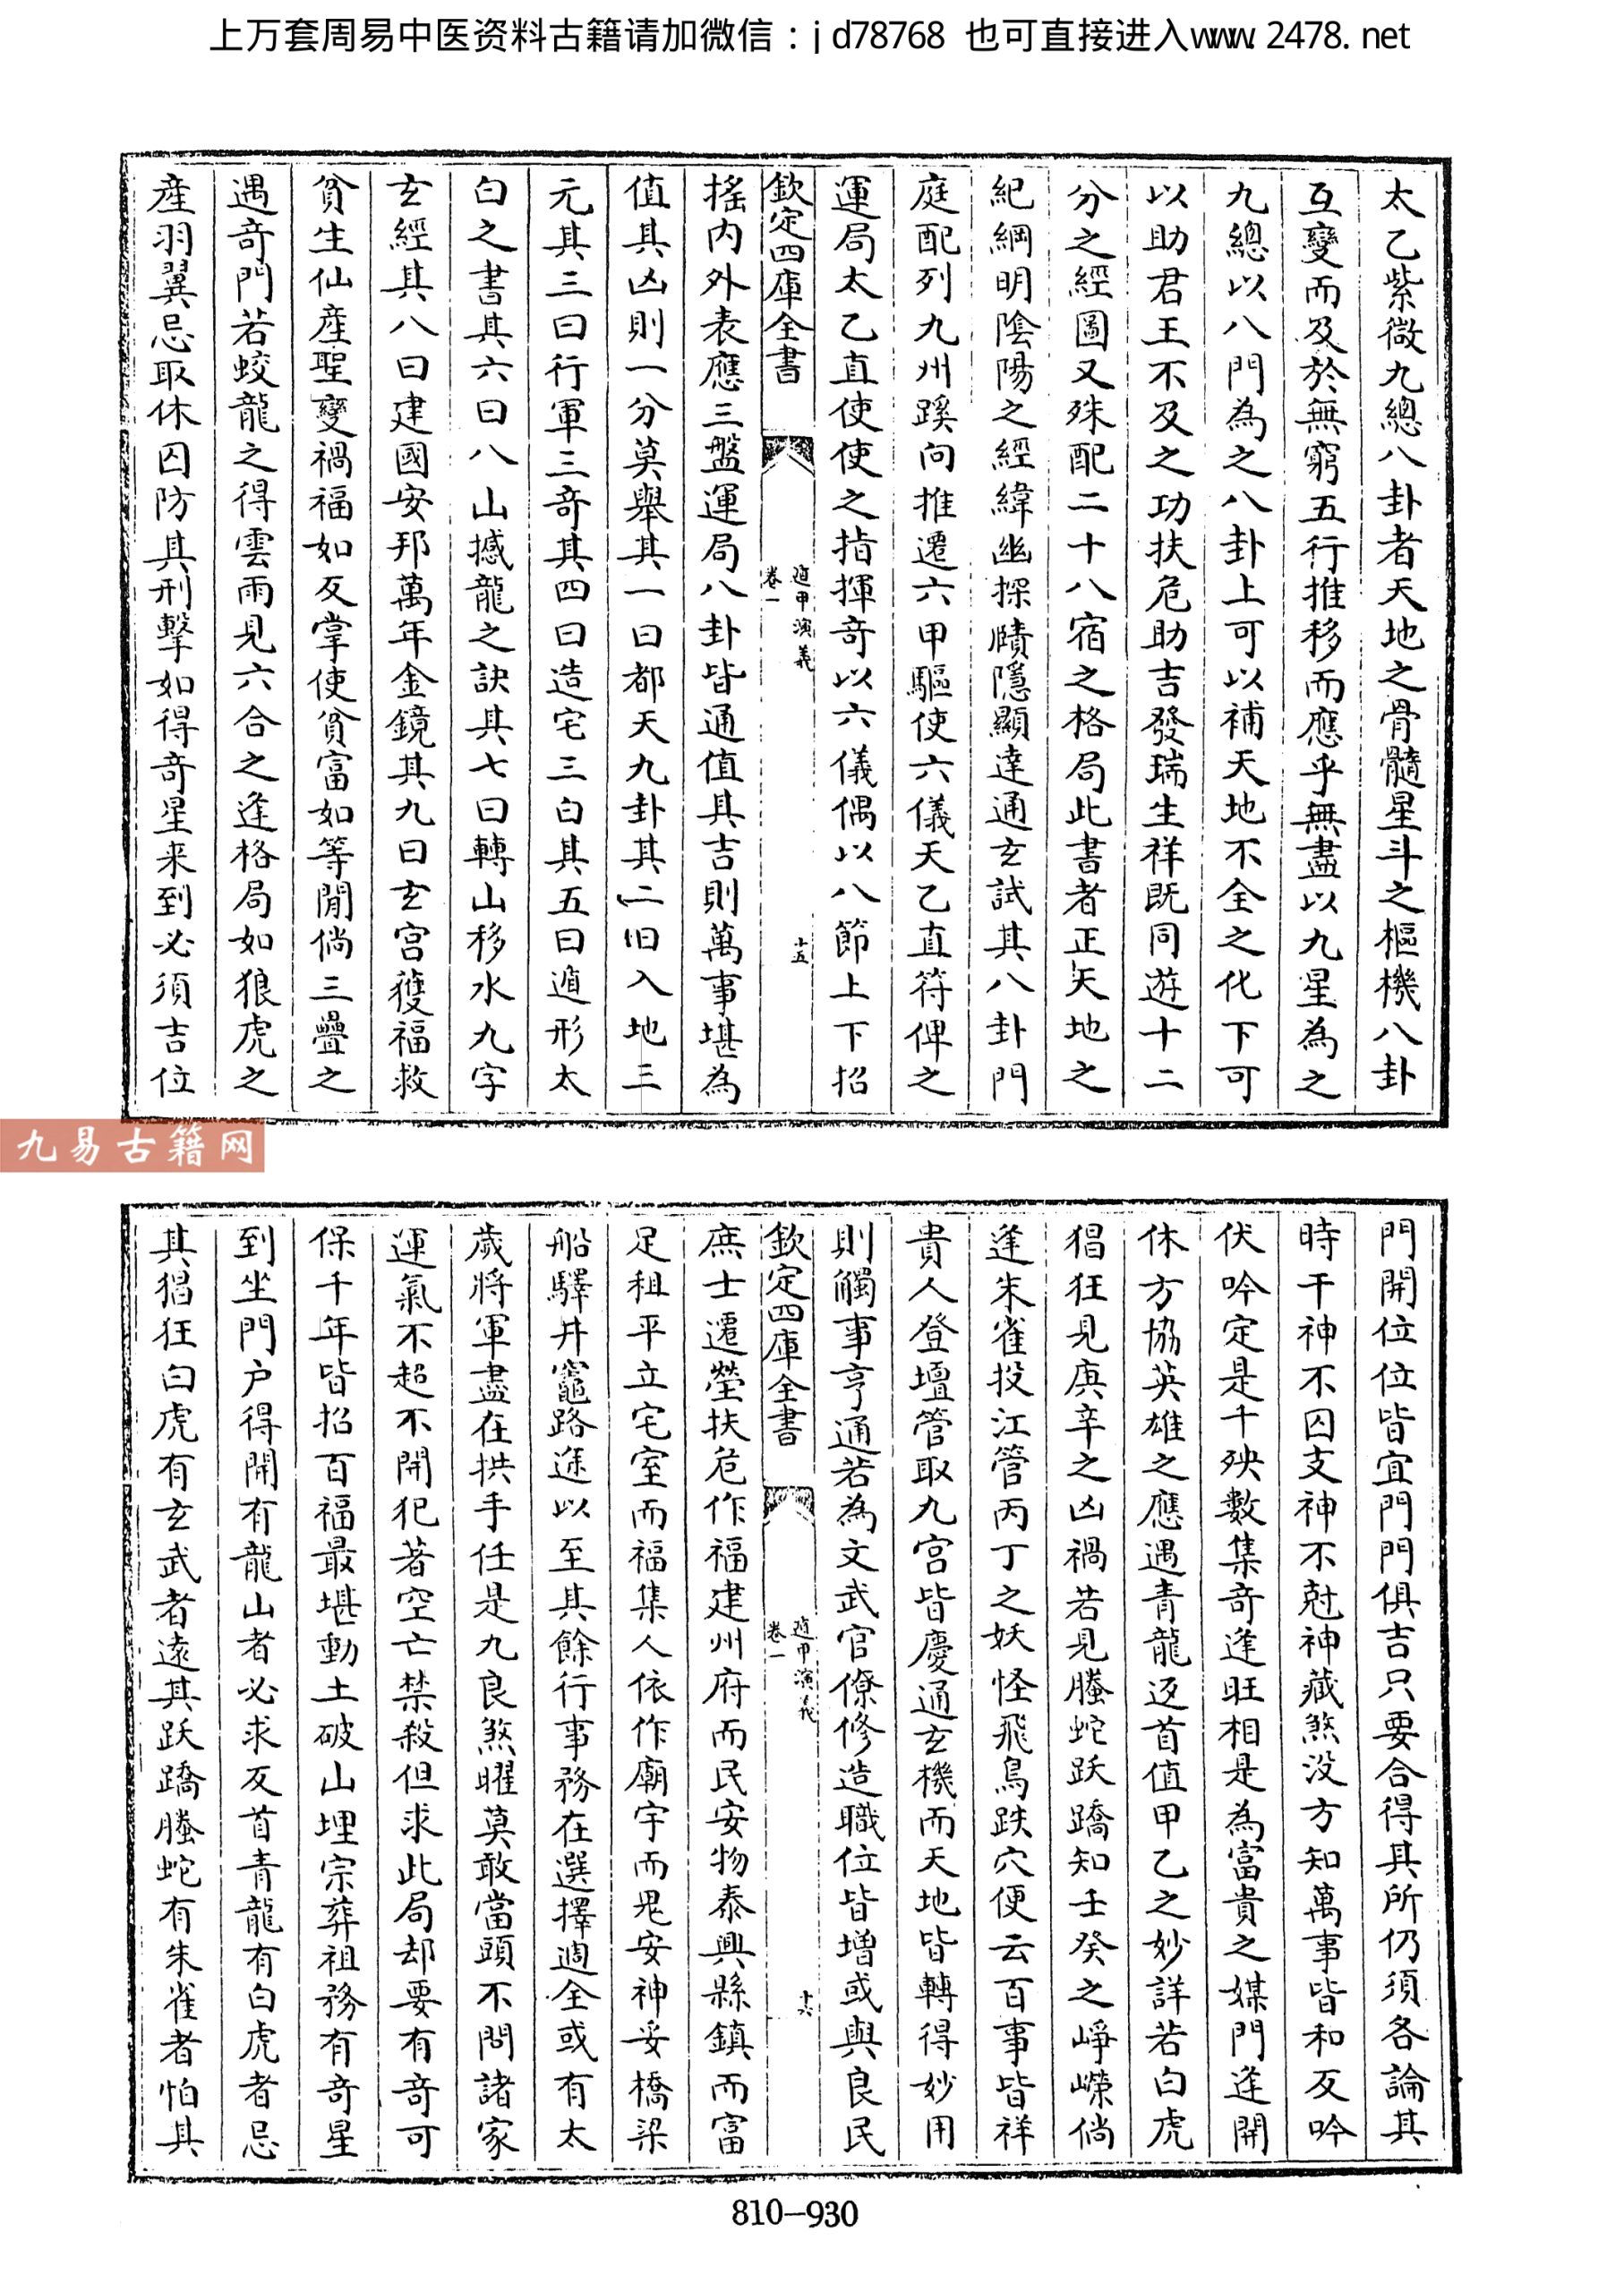 上万套周易中医资料古籍请加微信：jd78768 也可直接进入www.2478.net
太乙紫微九總八卦者天地之骨髓星斗之樞機八卦
互變而及於無窮五行推移而應乎無盡以九星為之
九總以八門為之八卦上可以補天地不全之化下可
以助君王不及之功扶危助吉發瑞生祥既同遊十二
分之經圖又殊配二十八宿之格局此書者正天地之
紀綱明陰陽之經緯幽探賾隱顯達通玄試其八卦門
庭配列九州蹊向推遷六甲驅使六儀天乙直符俾之
運局太乙直使使之指揮奇以六儀偶以八節上下招
欽定四庫全書
遁甲演義
卷一
十五
搖内外表應三盤運局八卦皆通值其吉則萬事堪為
值其凶則一分莫舉其一曰都天九卦其二曰入地三
元其三曰行軍三奇其四曰造宅三白其五曰遁形太
白之書其六曰八山撼龍之訣其七曰轉山移水九字
玄經其八曰建國安邦萬年金鏡其九曰玄宫獲福救
貧生仙産聖變禍福如反掌使貧富如等閒倘三疊之
遇奇門若蛟龍之得雲雨見六合之逢格局如狼虎之
産羽翼忌取休囚防其刑擊如得奇星来到必須吉位
九易古籍网
門開位位皆宜門門俱吉只要合得其所仍須各論其
時干神不囚支神不尅神藏煞没方知萬事皆和反吟
伏吟定是千殃數集奇逢旺相是為富貴之媒門逢開
休方協英雄之應遇青龍返首值甲乙之妙詳若白虎
猖狂見庚辛之凶禍若見螣蛇跃蹻知壬癸之崢嶸倘
逢朱雀投江管丙丁之妖怪飛鳥跌穴便云百事皆祥
貴人登壇管取九宫皆慶通玄機而天地皆轉得妙用
則觸事亨通若為文武官僚修造職位皆增或與良民
欽定四庫全書
遁甲演義
卷一
十六
庶士遷塋扶危作福建州府而民安物泰興縣鎮而富
足祖平立宅室而福集人依作廟宇而鬼安神妥橋梁
船驛井竈路途以至其餘行事務在選擇週全或有太
歲將軍盡在拱手任是九良煞曜莫敢當頭不問諸家
運氣不超不開犯著空亡禁殺但求此局却要有奇可
保千年皆招百福最堪動土破山埋宗葬祖務有奇星
到坐門户得開有龍山者必求反首青龍有白虎者忌
其猖狂白虎有玄武者遠其跃蹻螣蛇有朱雀者怕其
810-930